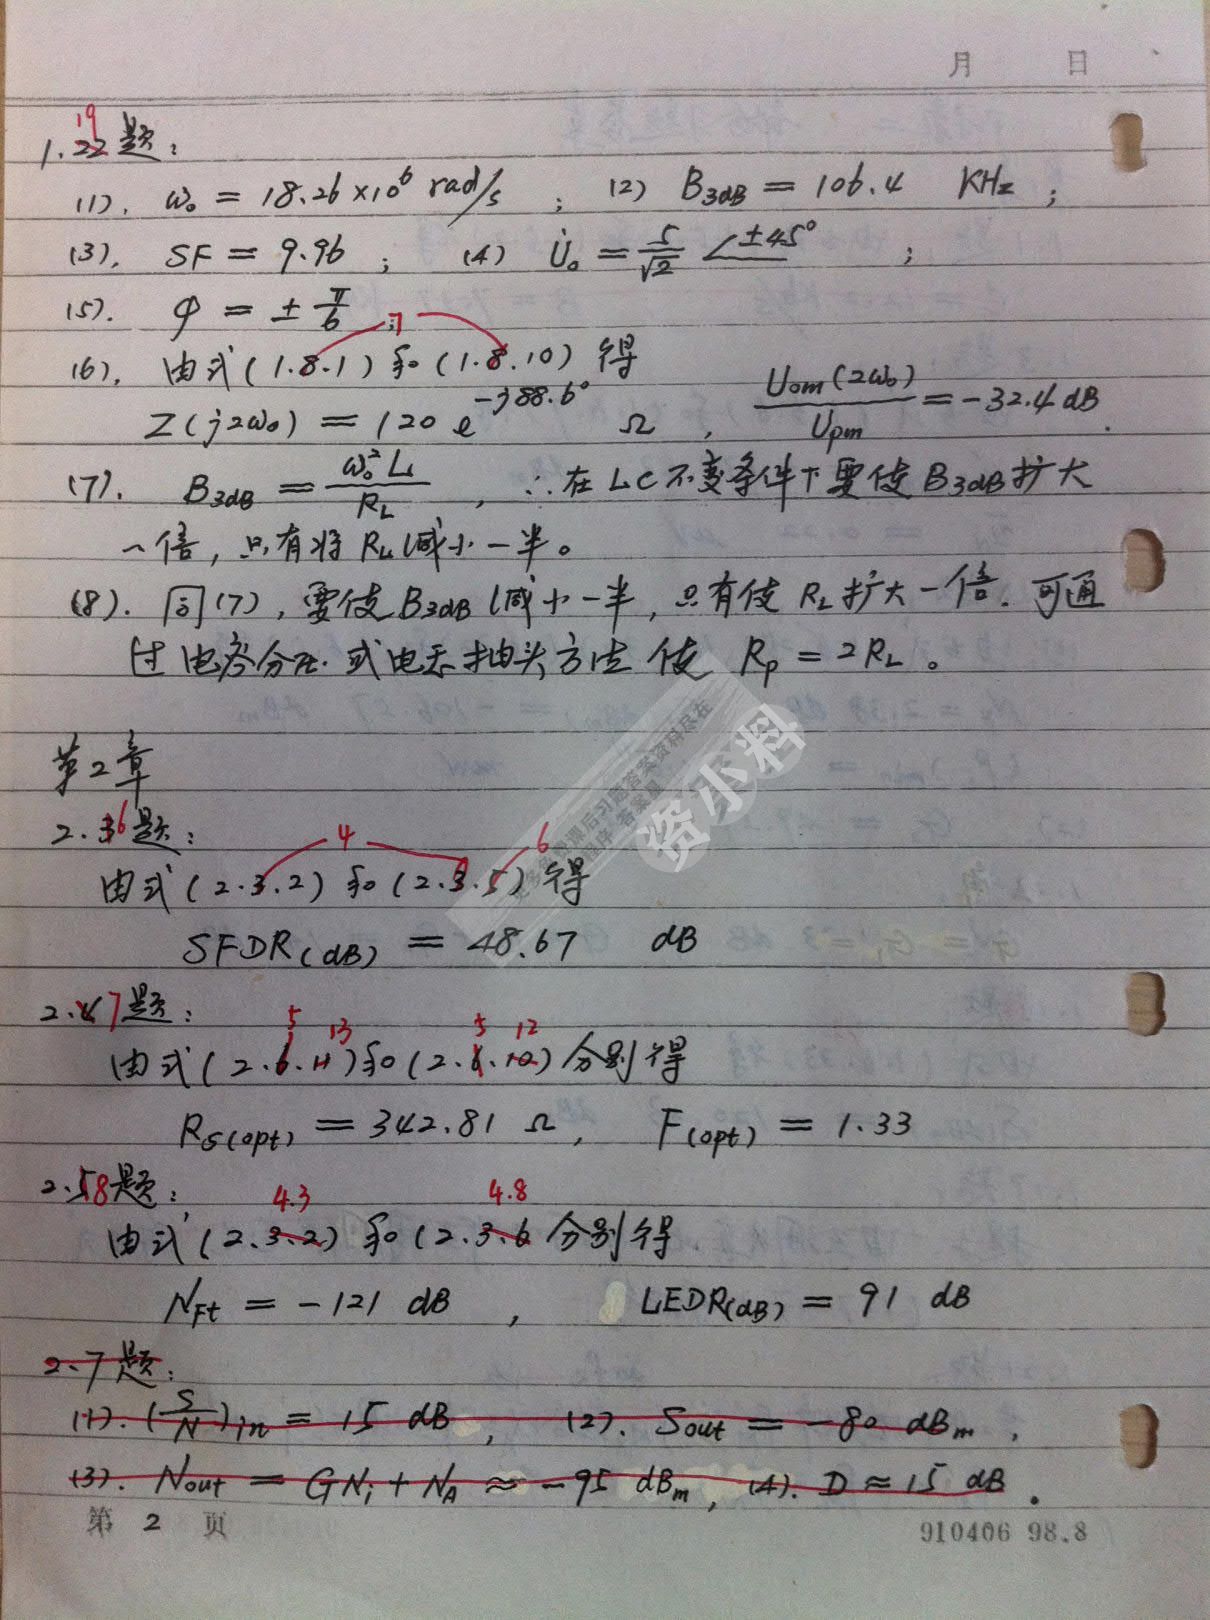 月 日
19
1.22题：
(1). ω₀ = 18.26×10⁶ rad/s ； (2) B3dB = 106.4 KHz ；
(3). SF = 9.96 ； (4) U̇₀ = 5/√2 ∠±45° ；
(5). φ = ± π/6 ；
7
(6). 由式(1.8.1)和(1.8.10)得
Z(j2ω₀) = 120 e^-j88.6° Ω , Uom(2ω₀)/Upm = -32.4 dB.
(7). B3dB = ω₀²L/RL , ∴在LC不变条件下要使B3dB扩大
一倍，只有将RL减小一半。
(8). 同(7)，要使B3dB减小一半，只有使RL扩大一倍.可通
过电容分压.或电感抽头方法使 Rp = 2RL。
更多免费课后习题答案资料尽在
程序 答案屋
资小料
第2章
2.36题：
4 6
由式(2.3.2)和(2.3.5)得
SFDR(dB) = 48.67 dB
2.47题：
5 13 5 12
由式(2.6.11)和(2.6.10)分别得
RS(opt) = 342.81 Ω , F(opt) = 1.33
2.58题：
4.3 4.8
由式(2.3.2)和(2.3.6分别得
NFt = -121 dB , LEDR(dB) = 91 dB
2.7题：
(1). (S/N)in = 15 dB , (2). Sout = -80 dBm .
(3). Nout = GNi + NA ≈ -95 dBm , (4). D ≈ 15 dB .
第 2 页 910406 98.8